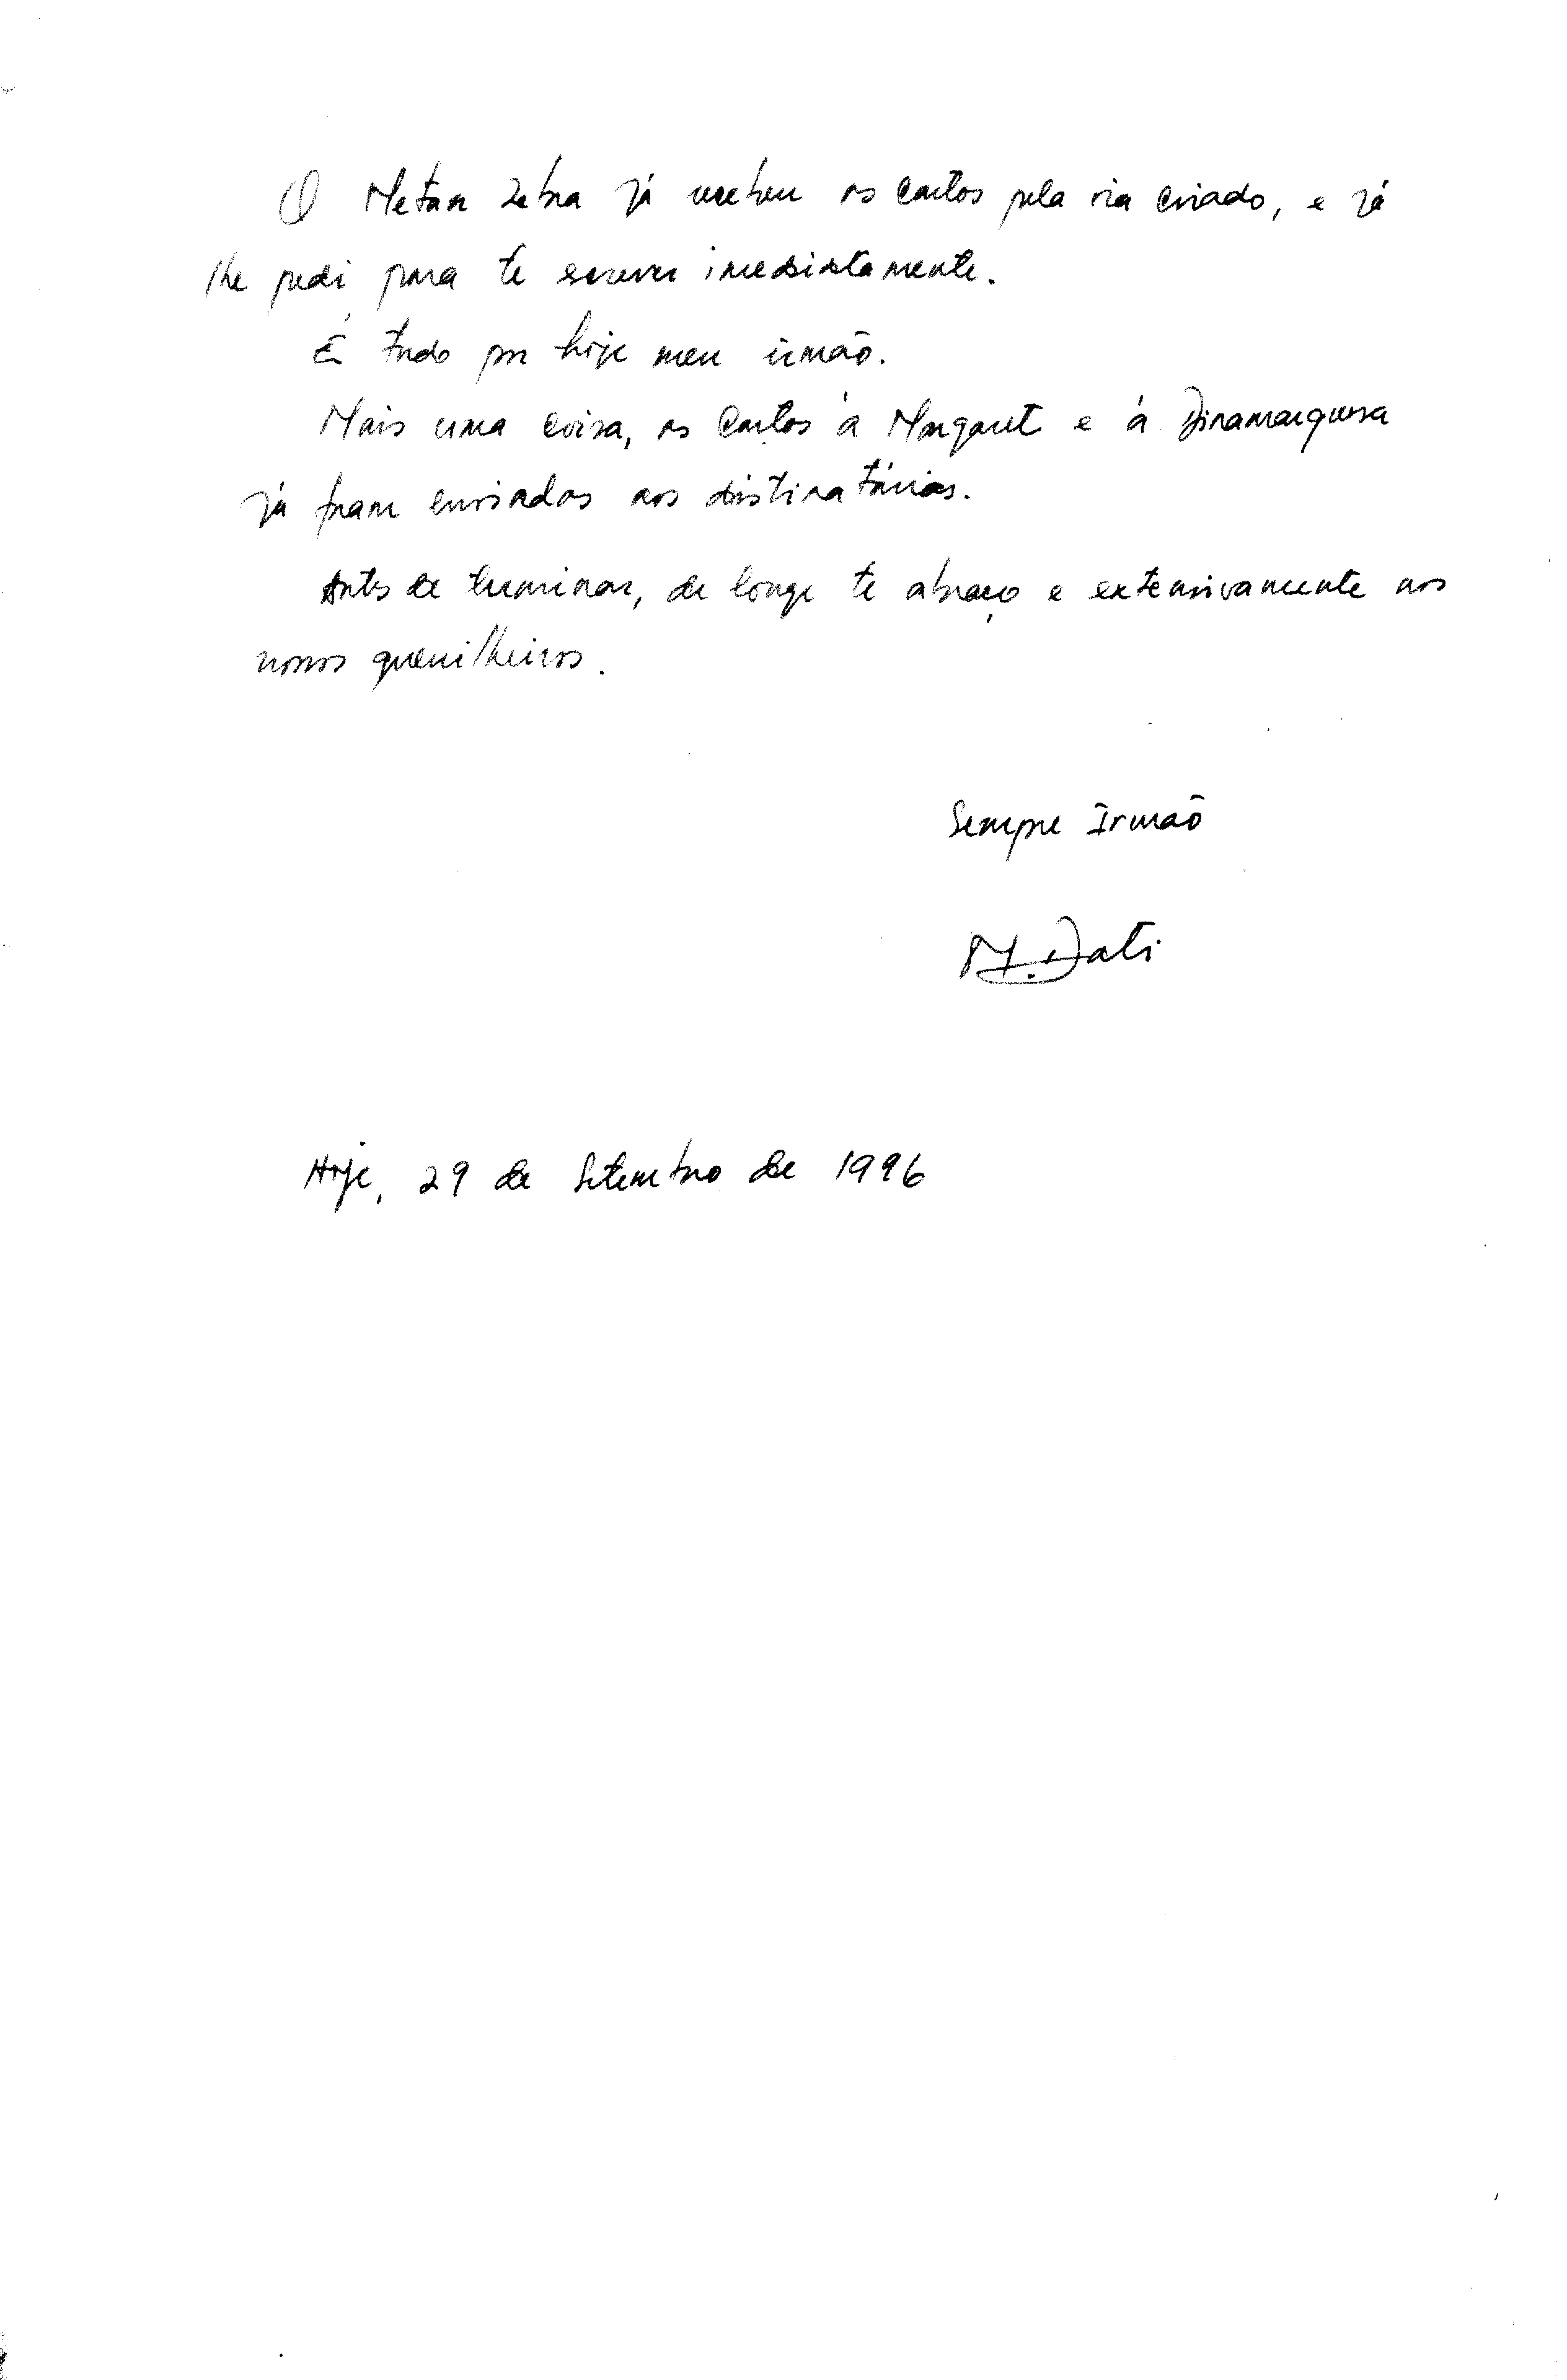 O Metan Zebra já recebeu as cartas pela via criado, e já
lhe pedi para te screver imediatamente.
É tudo por hoje meu irmão.
Mais uma coisa, as cartas à Margaret e à Dinamarquesa
já foram enviadas aos distinatários.
Antes de terminar, de longe te abraço e extensivamente aos
nossos guerrilheiros.
Sempre Irmão
M. Dati
Hoje, 29 de Setembro de 1996